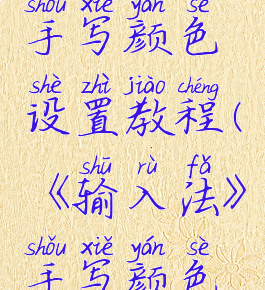 shǒu xiě yán sè
手写颜色
shè zhì jiào chéng
设置教程(
shū rù fǎ
《输入法》
shǒu xiě yán sè
手写颜色